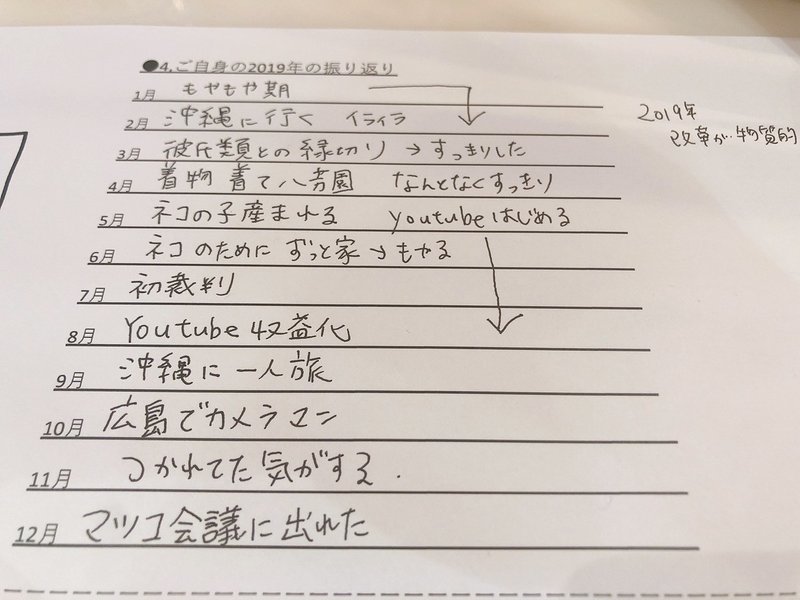 ●4.ご自身の2019年の振り返り
1月 もやもや期
2月 沖縄に行く イライラ
3月 彼氏類との縁切り → すっきりした
4月 着物着て八芳園 なんとなくすっきり
5月 ネコの子産まれる youtubeはじめる
6月 ネコのために ずっと家 → もやる
7月 初裁判
8月 Youtube 収益化
9月 沖縄に一人旅
10月 広島でカメラマン
11月 つかれてた気がする.
12月 マツコ会議に出れた
2019年
改革が..物質的